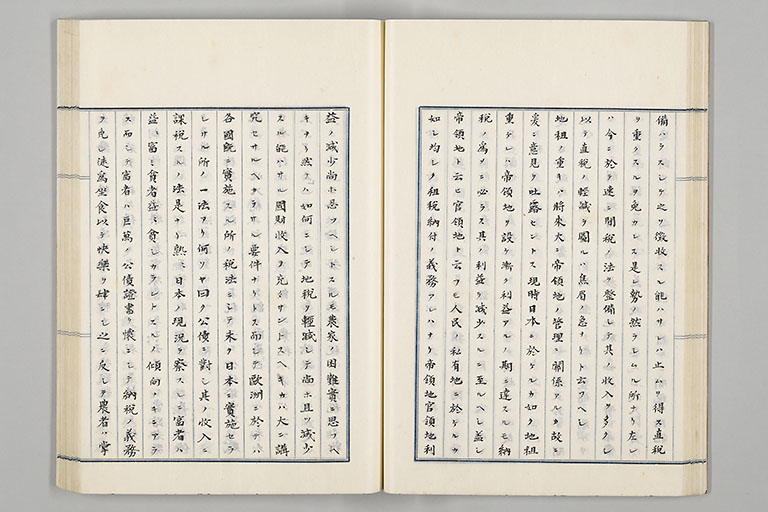 備ハラスシテ之ヲ徴收スル能ハサレハ止ムヲ得ス直税
ヲ重クスルヲ免カレス是レ勢ノ然ラシムル所ナリ左レ
ハ今ニ於テ速ニ間税ノ法ヲ整備シテ其ノ收入ヲ多クシ
以テ直税ノ輕減ヲ圖ルハ焦眉ノ急ナリト云フヘシ
地租ノ重キハ將來大ニ帝領地ノ管理ニ關係アルカ故ニ
爰ニ意見ヲ吐露セントス現時日本ニ於ケルカ如ク地租
重ケレハ帝領地ヲ設ケ漸ク利益アルノ期ニ達スルモ納
税ノ爲メニ必ラス其ノ利益ヲ減少スルニ至ルヘシ蓋シ
帝領地ト云ヒ官領地ト云フモ人民ノ私有地ニ於ケルカ
如ク均シク租税納付ノ義務アレハナリ帝領地官領地利
益ノ減少尚ホ忍フヘシトスルモ農家ノ困難實ニ思フヘ
キナリ然ラハ如何ニシテ地税ヲ輕減シテ尚ホ且ツ減少
スル能ハサル國財收入ノ完キヲ得ントスヘキカハ大ニ講
究セサルヘカラサル要件ナリトス而シテ歐洲ニ於テハ
各國既ニ實施スル所ノ税法ニシテ未タ日本ニ實施セラ
レサル所ノ一法アリ何ソヤ曰ク公債ニ對シ其ノ收入ニ
課税スルノ法是ナリ熟々日本ノ現況ヲ察スルニ富者ハ
益々富ミ貧者益々貧シカラントスルノ傾向ナキニアラ
ス而シテ富者ハ巨萬ノ公債證書ヲ懷ニシテ納税ノ義務
ヲ免レ徒爲坐食以テ快樂ヲ肆ニシ之ニ反シテ農者ハ掌